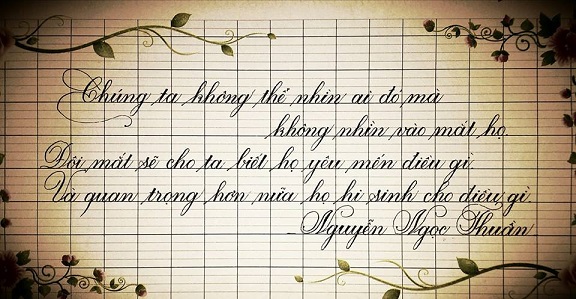 Chúng ta không thể nhìn ai đó mà
không nhìn vào mắt họ.
Đôi mắt sẽ cho ta biết họ yêu mến điều gì
Và quan trọng hơn nữa họ hi sinh cho điều gì.
_Nguyễn Ngọc Thuần_